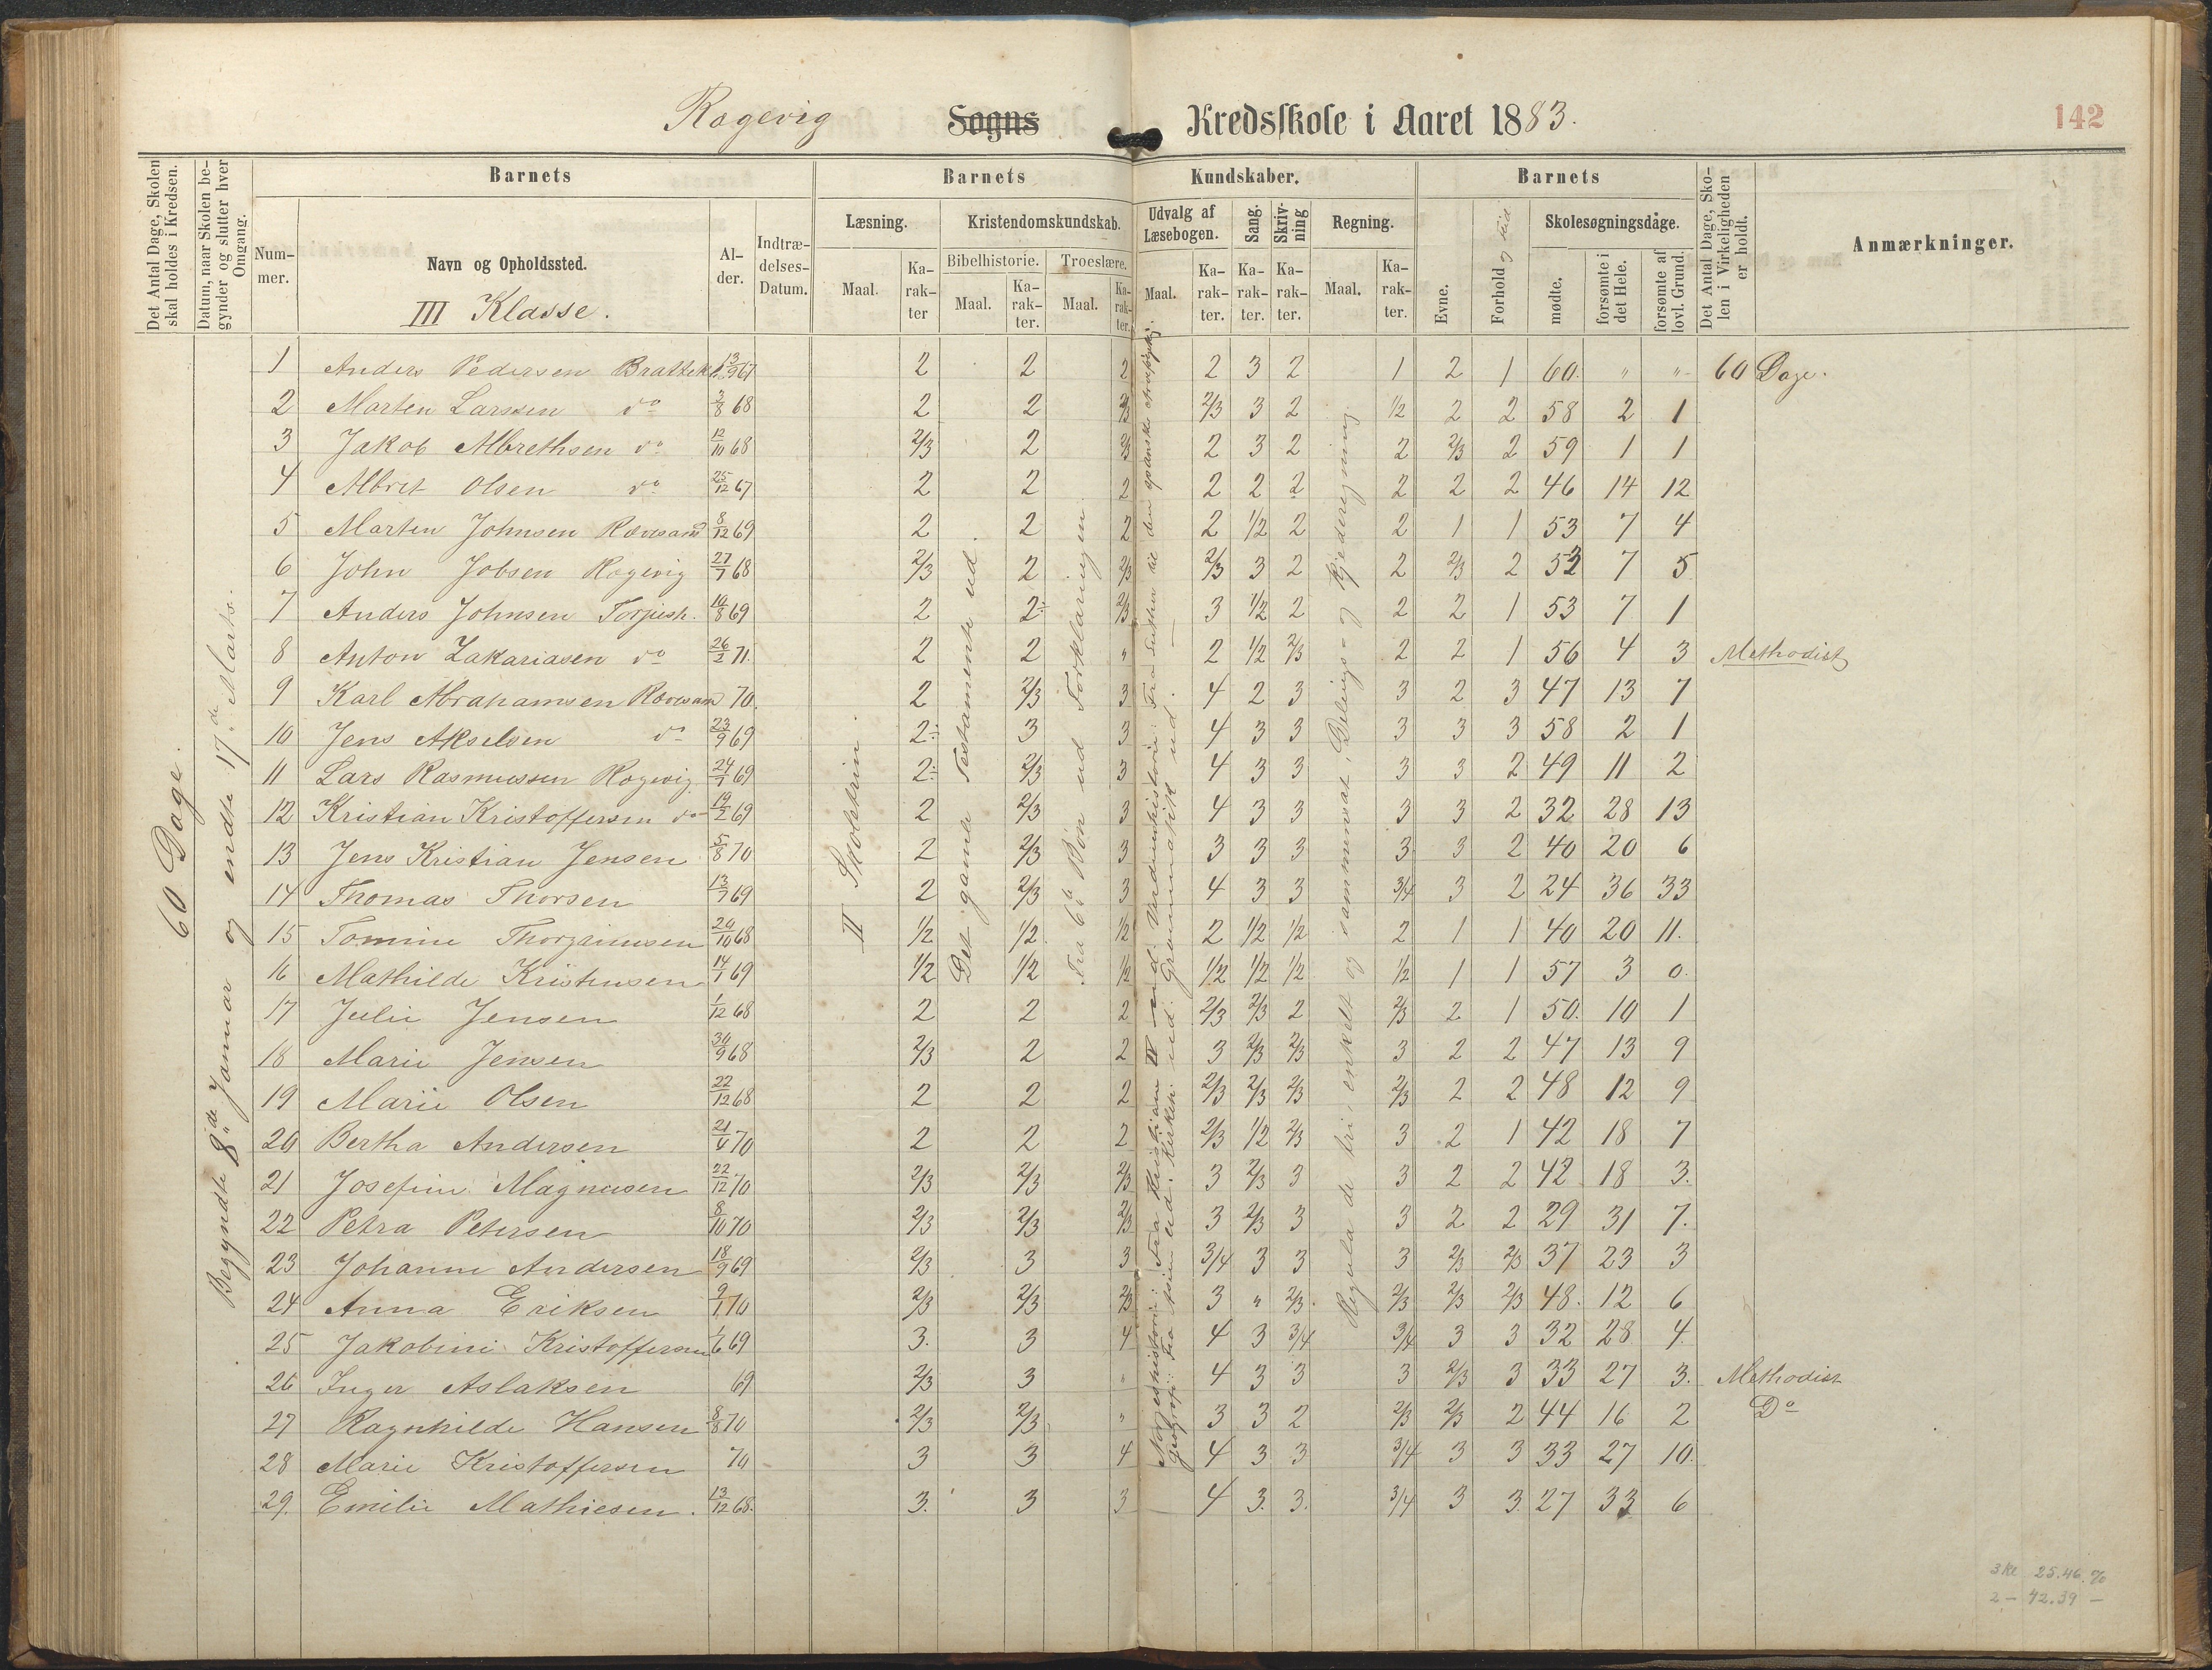 Rogevig Sogns Kredsskole i Aaret 1883.
142
Det Antal Dage, Skolen skal holdes i Kredsen.
Datum, naar Skolen begynder og slutter hver Omgang.
Barnets
Barnets
Kundskaber.
Barnets
Det Antal Dage, Skolen i Virkeligheden er holdt.
Anmærkninger.
Nummer.
Navn og Opholdssted.
III Klasse.
Alder.
Indtrædelses-Datum.
Læsning.
Kristendomskundskab.
Udvalg af Læsebogen.
Sang.
Skrivning
Regning.
Evne.
Forhold og Flid
Skolesøgningsdage.
Bibelhistorie.
Troeslære.
Maal.
Karakter
Maal.
Karakter.
Maal.
Karakter.
Maal.
Karakter.
Karakter.
Karakter.
Maal.
Karakter.
mødte.
forsømte i det Hele.
forsømte af lovl. Grund.
60 Dage.
Begyndte 8de Januar og endte 17de Marts.
II Skoletrin.
Det gamle Testamente ud.
Fra 6te Bøn ud Forklaringen
Regula de tri, enkelt og sammensat, Delings- og Kjederegning.
1 Anders Pedersen Brattekl. 13/9 67 2 2 2 2 3 2 1 2 1 60. " " 60 Dage.
2 Marten Larssen do 3/8 68 2 2 2/3 2/3 3 2 1/2 2 2 58 2 1
3 Jakob Albrethsen do 12/10 68 2/3 2 2/3 2 3 2 2 2/3 2 59 1 1
4 Albret Olsen do 25/12 67 2 2 2 2 2 2 2 2 2 46 14 12
5 Marten Johnsen Rævesand 8/12 69 2 2 2 2 1/2 2 2 1 1 53 7 4
6 John Jobsen Rogevig 27/7 68 2/3 2 2/3 2/3 3 2 2 2/3 2 53 7 5
7 Anders Johnsen Torjush. 10/8 69 2 2÷ 2/3 3 1/2 2 2 2 1 53 7 1
8 Anton Zakariasen do 26/2 71. 2 2 " 2 1/2 2/3 2 2 1 56 4 3 Methodist
9 Karl Abrahamsen Rævesan 70. 2 2/3 3 4 2 3 3 2 3 47 13 7
10 Jens Akselsen do 23/9 69 2÷ 3 3 4 3 3 3 3 3 58 2 1
11 Lars Rasmussen Rogevig. 24/7 69 2÷ 2/3 3 4 3 3 3 3 2 49 11 2
12 Kristian Kristoffersen do 19/2 69 2 2/3 3 4 3 3 3 3 2 32 28 13
13 Jens Kristian Jensen 5/8 70 2 2/3 3 3 3 3 3 3 2 40 20 6
14 Thomas Thorsen 13/7 69 2 2/3 3 4 3 3 3/4 3 2 24 36 33
15 Tomine Thorgrimsen 20/10 68 1/2 1/2 1/2 2 1/2 1/2 2 1 1 40 20 11.
16 Mathilde Kristensen 14/1 69 1/2 1/2 1/2 1/2 1/2 1/2 1/2 1 1 57 3 0.
17 Julie Jensen 1/12 68 2 2 2 2/3 2/3 2 2/3 2 1 50. 10 1
18 Marie Jensen 30/9 68 2/3 2 2 3 2/3 2/3 3 2 2 47 13 9
19 Marie Olsen 22/12 68 2 2 2 2/3 2/3 2/3 2/3 2 2 48 12 9
20 Bertha Andersen 21/4 70 2 2 2 2/3 1/2 2/3 3 2 1 42 18 7
21 Josefine Magnusen 22/12 70 2/3 2/3 2/3 3 2/3 3 3 2 2 42 18 3.
22 Petra Petersen 8/10 70 2/3 2/3 2/3 3 2/3 3 3 2 2 29 31 7.
23 Johanne Andersen 18/9 69 2/3 3 3 3/4 3 3 3 2/3 2/3 37 23 3
24 Anna Eriksen 9/1 70 2/3 2/3 2/3 3 " 2/3 2/3 2/3 2/3 48. 12 6
25 Jakobine Kristoffersen 1/6 69 3. 3 4 4 3 3/4 3/4 3 3 32 28 4.
26 Inger Aslaksen 69 2/3 3 " 4 3 3 3 2/3 3 33 27 3. Methodist
27 Ragnhilde Hansen 8/8 70 2/3 2/3 " 3 3 2 2/3 2/3 2 44 16 2 Do
28 Marie Kristoffersen 70 3 3 4 4 3 3 3/4 3 3 33 27 10.
29. Emilie Mathiesen. 13/12 68. 3. 3 3 4 3. 3. 3/4 3 3. 27 33 6
3 Kl 25.46 %
2 – 42.39 –